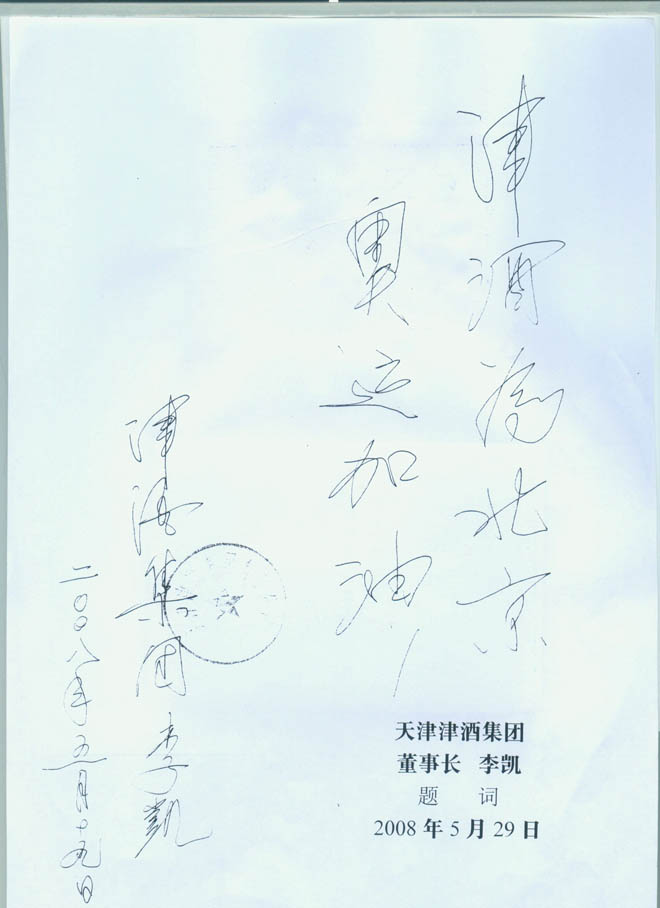 津酒为北京
奥运加油
津酒集团李凯
二〇〇八年五月十九日
天津津酒集团
董事长 李凯
题 词
2008 年 5 月 29 日